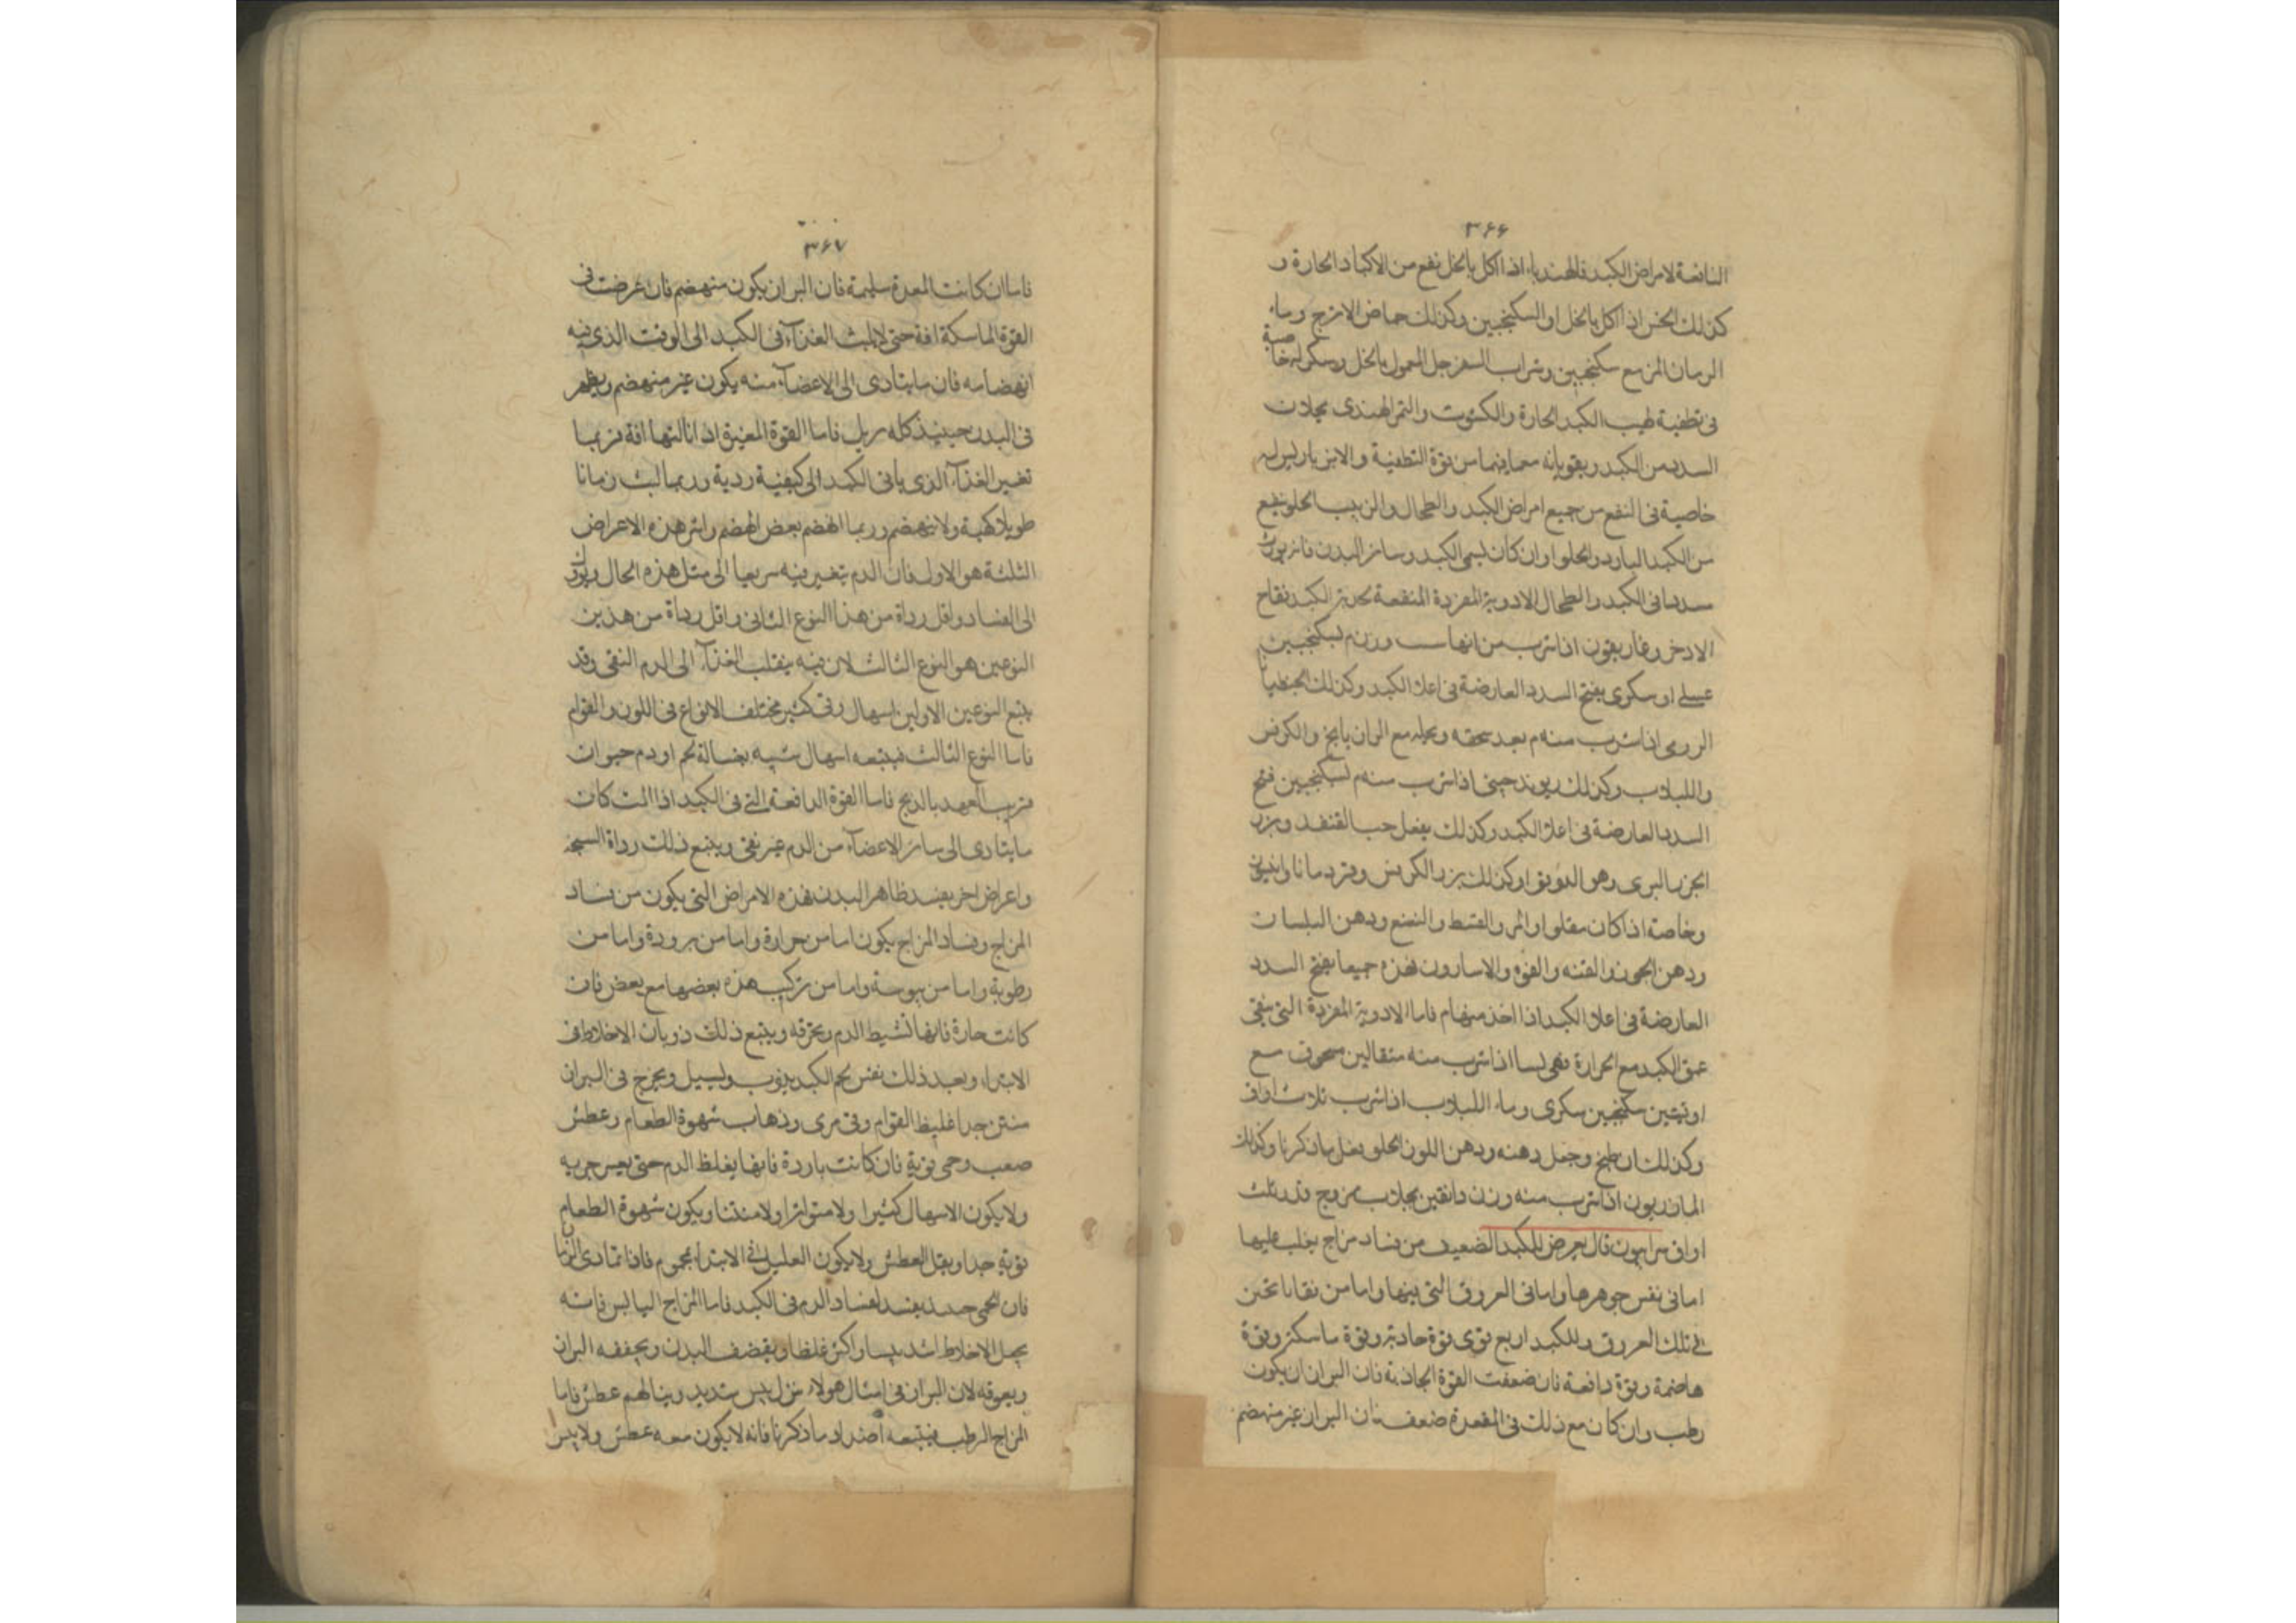 ٣۶۶
النافعة لامراض الكبد فالهندباء اذا اكل بالخل نفع من الاكباد الحارة و
كذلك الخس اذا اكل بالخل او السكنجبين وكذلك حماض الاترج وماء
الرمان المز مع سكنجبين وشراب السفرجل المعمول بالخل وسكر له خاصية
فى تطفية لهيب الكبد الحارة والكشوت والتمر الهندى يجلان
السدد من الكبد ويقويانه مع ما فيهما من قوة التطفية والانبرباريس له
خاصية فى النفع من جميع امراض الكبد والطحال والزبيب الحلو ينفع
من الكبد البارد والحلوا وان كان يسمى الكبد وسائر البدن فانه يورث
سددا فى الكبد والطحال الادوية المفردة المنقعة لحدبة الكبد فقاح
الاذخر وغاريقون اذا شرب من ايهما وزن م بسكنجبين
عسلى او سكرى يفتح السدد العارضة فى اعلا الكبد وكذلك الجنطيانا
الرومى اذا شرب منه م بعد سحقه ونخله مع الرازيانج والكرفس
واللبلاب وكذلك ريوند چينى اذا شرب منه م بسكنجبين فتح
السدد العارضة فى اعلا الكبد وكذلك يفعل حب القنفد وبزر
الجزر البرى وهو الدوقو وكذلك بزر الكرفس وقردمانا وانيسون
وخاصة اذا كان مقلوا والمر والقسط والنعنع ودهن البلسان
ودهن والفوه والاسارون فهذه جميعا يفتح السدد
العارضة فى اعلا الكبد اذا اخذ منها م فاما الادوية المفردة التى ينقى
عمق الكبد مع الحرارة فهى لسا اذا شرب منه مثقالين مسحوق مع
اوقيتين سكنجبين سكرى وماء اللبلاب اذا شرب ثلاث اواق
وكذلك ان طبخ وجعل دهنه ودهن اللوز الحلو يفعل ما ذكرنا وكذلك
المازريون اذا شرب منه وزن دانقين بجلاب ممزوج قدر ثلث
اواق سرابيون قال يعرض للكبد الضعيف من فساد مزاج يغلب عليها
اما فى نفس جوهرها واما فى العروق التى فيها واما من بقايا تختن
فى تلك العروق وللكبد اربع قوى قوة جاذبة وقوة ماسكة وقوة
هاضمة وقوة دافعة فان ضعفت القوة الجاذبة فان البراز يكون
رطب وان كان مع ذلك فى المعدة ضعف فان البراز غير منهضم
٣۶٧
فاما ان كانت المعدة سليمة فان البراز يكون منهضم فان عرضت فى
القوة الماسكة افة حتى لا يلبث الغذآء فى الكبد الى الوقت الذى فيه
انهضامه فان ما يتادى الى الاعضآء منه يكون غير منهضم ويظهر
فى البدن حينيذ كله تربل فاما القوة المغيرة اذا نالتها افة فربما
تغير الغذآء الذى ياتى الكبد الى كيفية ردية وربما لبث زمانا
طويلا كهيئة ولا ينهضم وربما انهضم بعض الهضم واشر هذه الاعراض
الثلثة هو الاول فان الدم يتغير فيه سريعا الى مثل هذه الحال ويؤل
الى الفساد واقل رداة من هذا النوع الثانى واقل رداة من هذين
النوعين هو النوع الثالث لان فيه ينقلب الغذآء الى الدم النقى وقد
يتبع النوعين الاولين اسهال وقى كثير مختلف الانواع فى اللون والقوام
فاما النوع الثالث فيتبعه اسهال شبيه بغسالة لحم او دم حيوان
قريب العهد بالذبح فاما القوة الدافعة التى فى الكبد اذا الت كان
ما يتادى الى سائر الاعضآء من الدم غير نقى ويتبع ذلك رداة السحنة
واعراض اخر يفسد ظاهر البدن فهذه الامراض التى يكون من فساد
المزاج وفساد المزاج يكون اما من حرارة واما من برودة واما من
رطوبة واما من يبوسة واما من تركيب هذه بعضها مع بعض فان
كانت حارة فانها تشيط الدم وتحرقه ويتبع ذلك ذوبان الاخلاط فى
الابتداء وبعد ذلك نفس لحم الكبد يذوب ويسيل ويخرج فى البراز
منتن جدا غليظ القوام وقى مرى وذهاب شهوة الطعام وعطش
صعب وحمى قوية فان كانت باردة فانها يغلظ الدم حتى يعسر جريه
ولا يكون الاسهال كثيرا ولا متواترا ولا منتنا ويكون شهوة الطعام
قوية جدا ويقل العطش ولا يكون العليل فى الابتدآء محموم فاذا تمادى الزمان
فان الحمى يفسد لفساد الدم فى الكبد فاما المزاج اليابس فانه
يجعل الاخلاط اشد يبسا واكثر غلظا ويقضف البدن ويجففه البراز
ويعوقه لان البراز فى امثال هولاء يبس شديد وينالهم عطش فاما
المزاج الرطب فيتبعه اضداد ما ذكرنا فانه لا يكون معه عطش ولا يبس